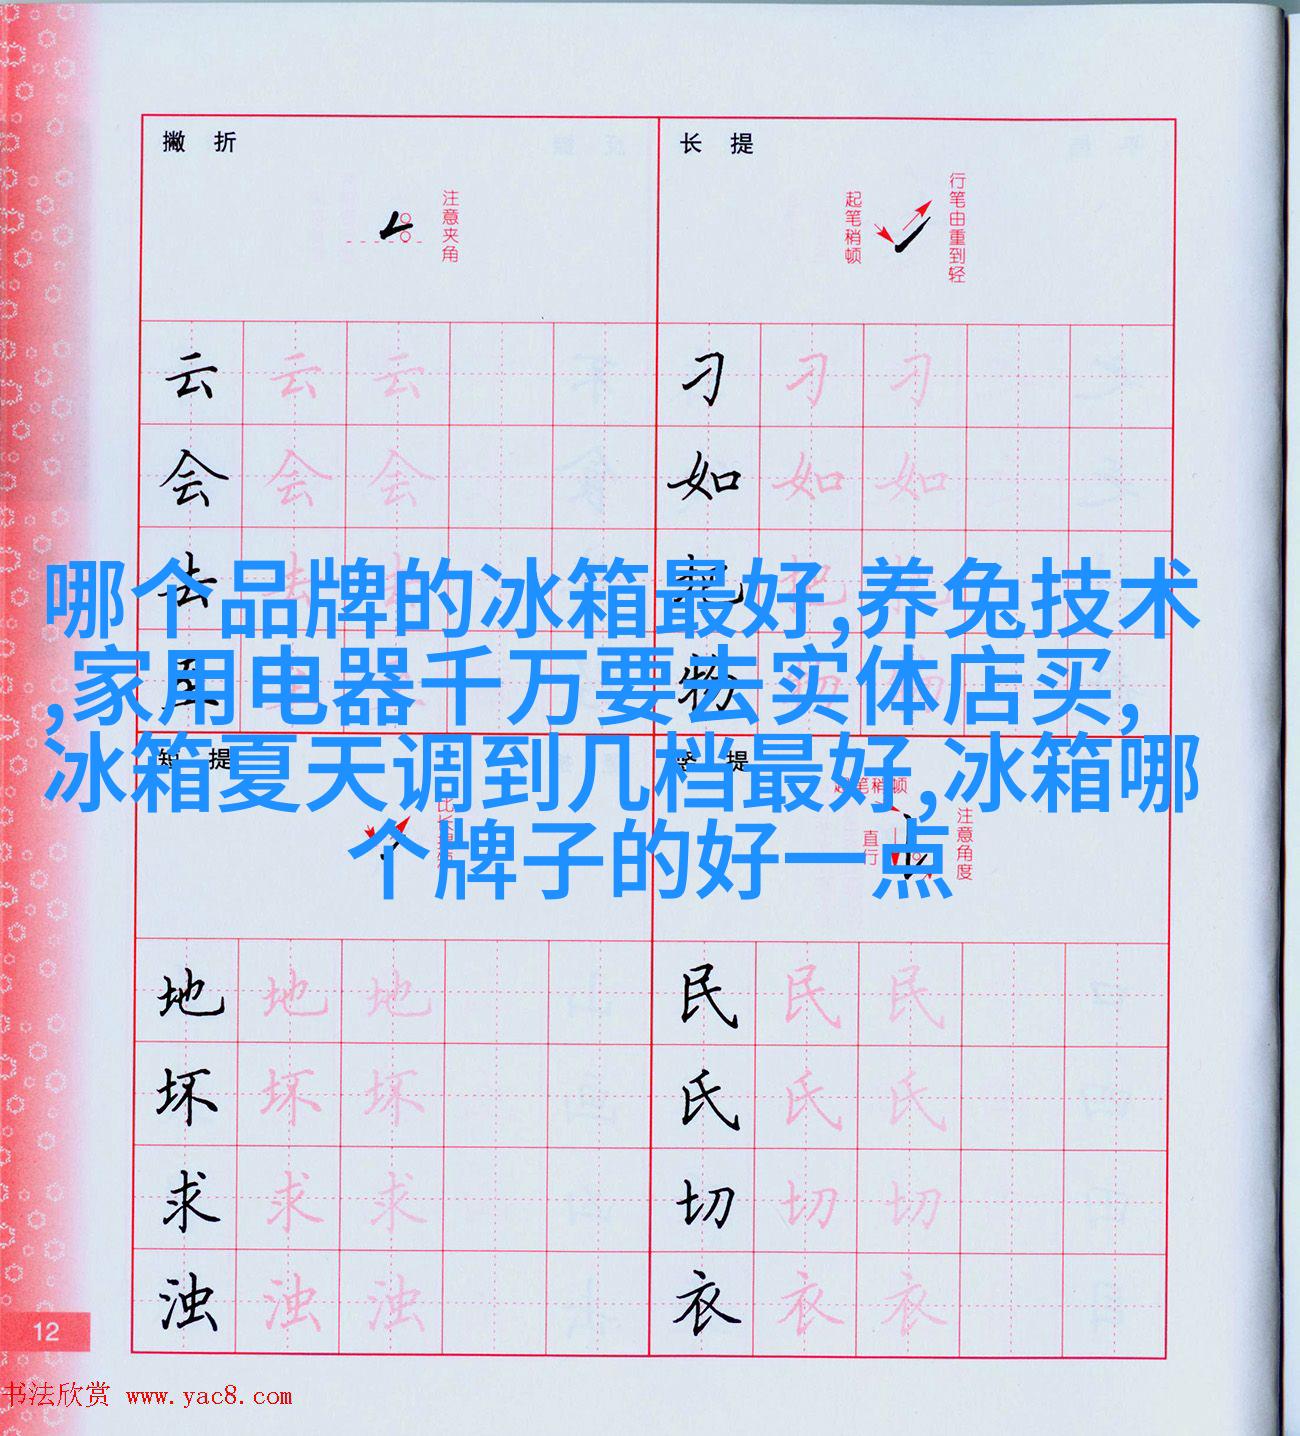 撇 折
注意夹角
云 云 云
会 会 会
去 去 去
长 提
起笔稍顿
行笔由重到轻
刁 刁 刁
如 如 如
把 把 把
物 物 物
哪个品牌的冰箱最好,养兔技术
,家用电器千万要去实体店买,
冰箱夏天调到几档最好,冰箱哪
个牌子的好一点
短 提
比长提短
地 地 地
坏 坏 坏
求 求 求
浊 浊 浊
竖 提
起笔稍顿
直行
注意角度
民 民 民
氏 氏 氏
切 切 切
衣 衣 衣
12
书法欣赏 www.yac8.com